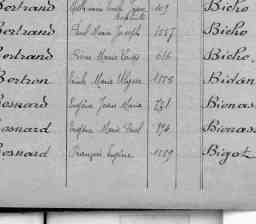 Bertrand 109 Bicho
Bertrand Paul Marie Joseph 1057 Bicho
Bertrand Pierre Marie 616 Biche
Bertron Emile Marie 1558 Bidan
Besnard Eugène Jean Marie 781 Bienas
Besnard Eugène Marie Paul 894 Bienas
Besnard François Eugène 1559 Bigot